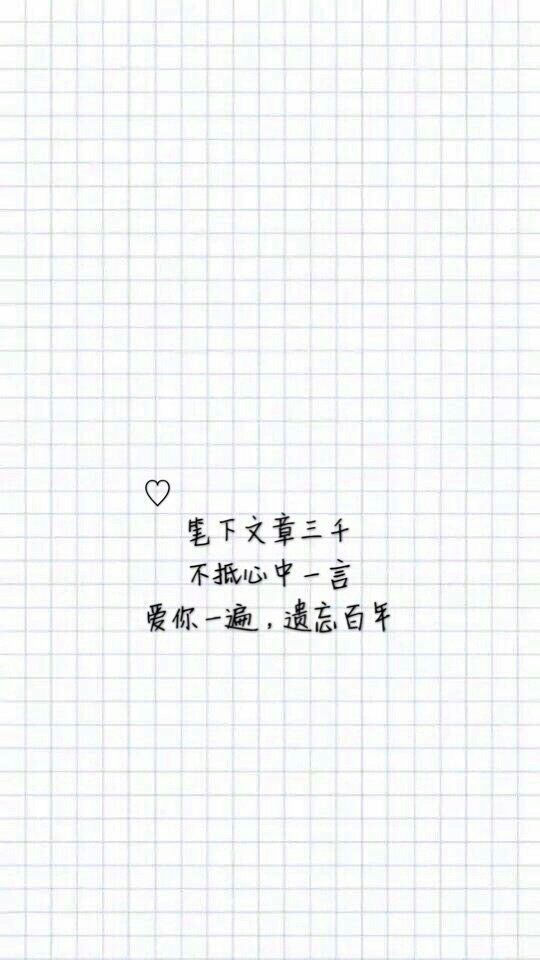 ♡
笔下文章三千
不抵心中一言
爱你一遍，遗忘百年